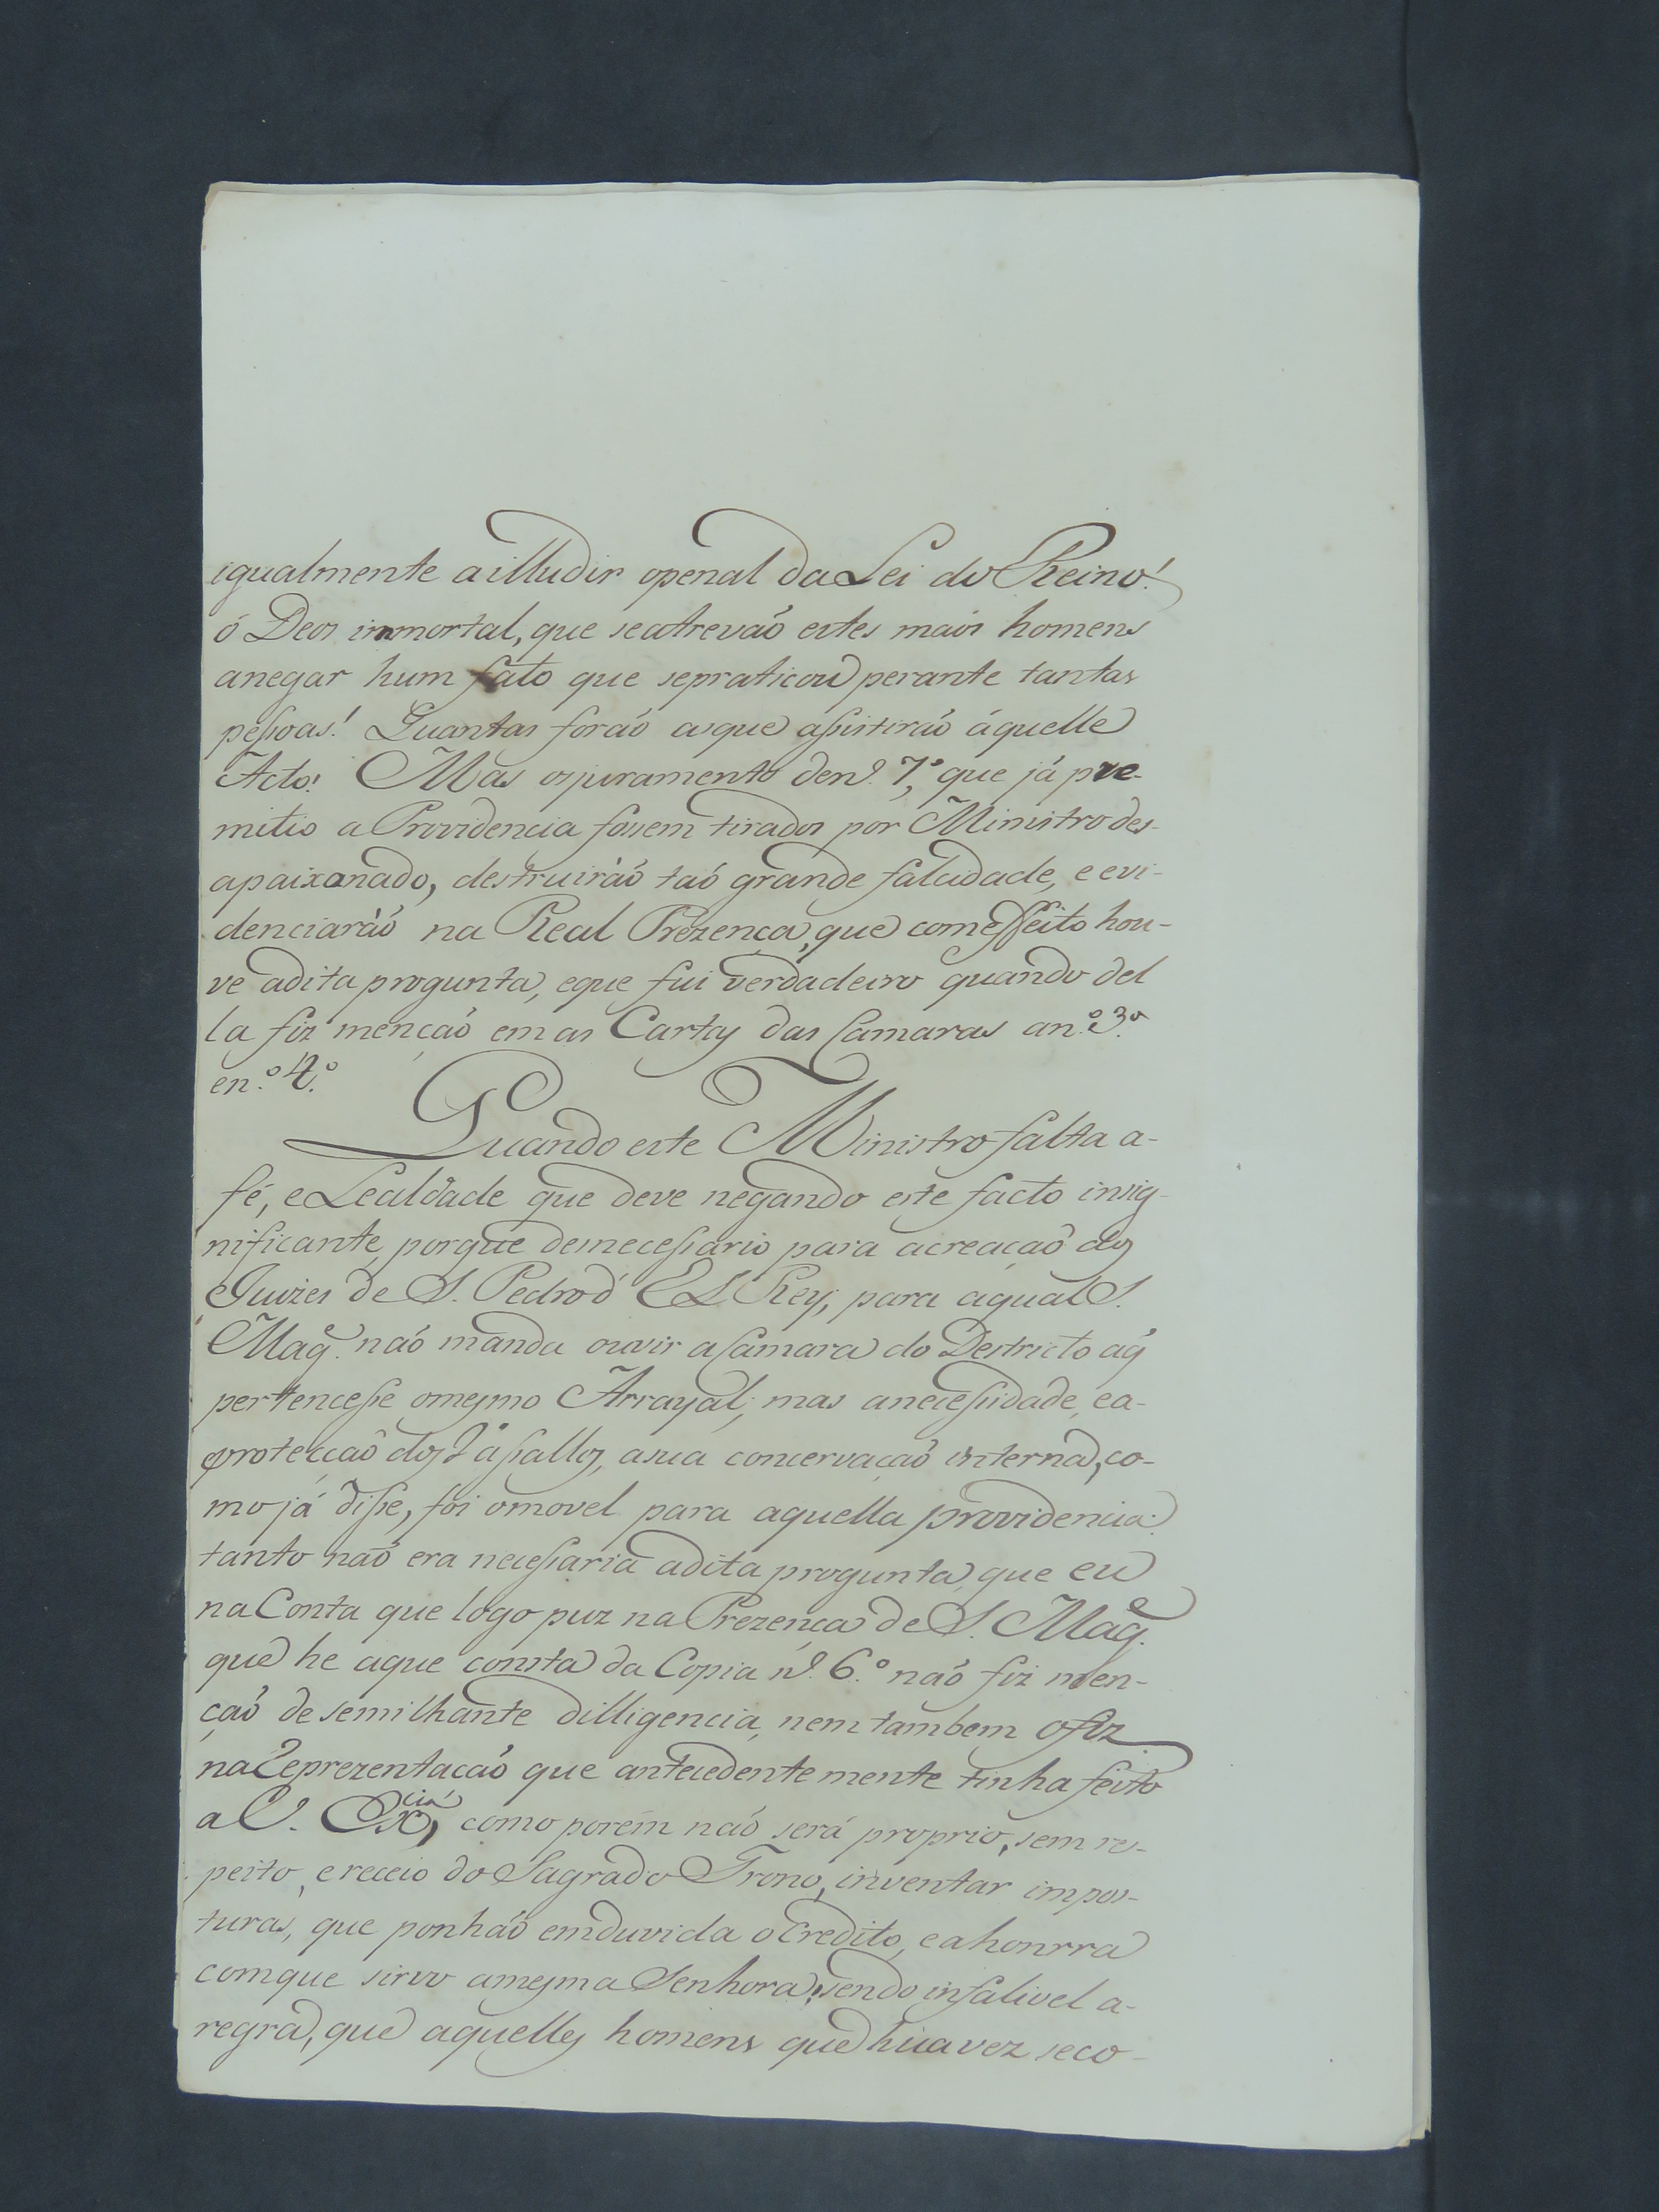 igualmente a illudir openal da Lei do Reino!
ó Deos immortal, que seatrevaó estes maos homens
anegar hum fato que sepraticou perante tantas
peſsoas! Quantas foraó asque aſsistiraó áquelle
Acto! Mas osjuramentos den.º 7.º, que já pre-
mitio a Providencia foſsem tirados por Ministro des-
apaixonado, destruiráó taó grande falcidade, e evi-
denciaráó na Real Prezença, que comeffeito hou-
ve adita progunta, eque fui verdadeiro quando del
la fiz mençaó em as Cartas das Camaras an.º 3.º
en.º 4.º
Quando este Ministro falta a-
fé, eLealdade que deve negando este facto insig-
nificante, porque desneceſsario para acreaçaó dos
Juizes de S. Pedro d'El Rey, para aqual S.
Mag.e naó manda ouvir aCamara do Destricto áq̃
pertenceſse omesmo Arrayal; mas aneceſsidade, ea-
protecçaó dos Vaſsallos, asua concervaçaó interna, co-
mo já diſse, foi omovel para aquella providencia:
tanto naó era neceſsaria adita progunta, que eu
na Conta que logo puz na Prezença de S. Mag.e
que he aque consta da Copia n.º 6.º naó fiz men-
çaó de semilhante dilligencia, nem tambem ofiz
naReprezentaçaó que antecedentemente tinha feito
a V. Ex.cia, como porem naó será proprio, sem res-
peito, e receio do Sagrado Trono, inventar impos-
turas, que ponhaó emduvida oCredito, eahonrra
comque sirvo amesma Senhora; sendo infalivel a-
regra, que aquelles homens que hũa vez seco-